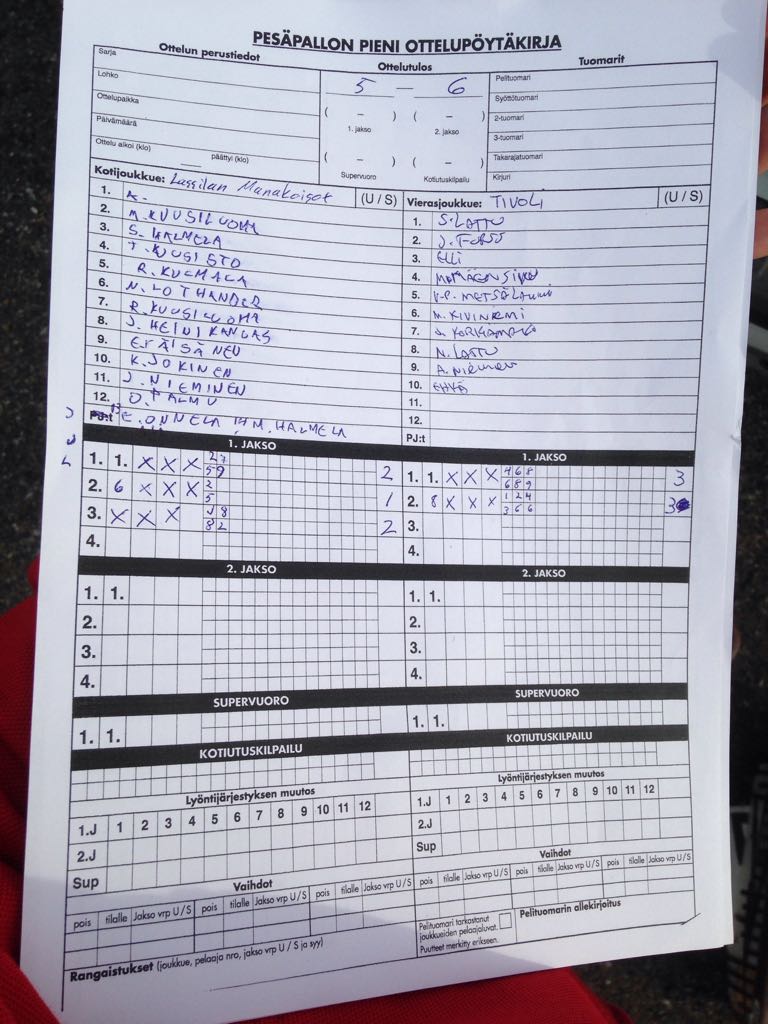 PESÄPALLON PIENI OTTELUPÖYTÄKIRJA
Ottelun perustiedot
Ottelutulos
Tuomarit
Sarja
Lohko
Ottelupaikka
Päivämäärä
Ottelu alkoi (klo) päättyi (klo)
5 – 6
( – ) ( – )
1. jakso 2. jakso
( – ) ( – )
Supervuoro Kotiutuskilpailu
Pelituomari
Syöttötuomari
2-tuomari
3-tuomari
Takarajatuomari
Kirjuri
Kotijoukkue: Lassilan Manakoisot (U / S)
1. A.
2. M. KUUSILUOMA
3. S. HALMELA
4. T. KUUSISTO
5. R. KULMALA
6. N. LOTHANDER
7. R. KUUSILUOMA
8. J. HEINIKANGAS
9. E. RÄISÄNEN
10. K. JOKINEN
11. J. NIEMINEN
12. O. PALMU
PJ:t 13 E. ONNELA 14 M. HALMELA
Vierasjoukkue: TIVOLI (U / S)
1. S. LATTU
2. J. FORSS
3. ELLI
4.
5. V-P. METSÄLAMMI
6. M. KIVINIEMI
7.
8. N. LATTU
9. A. NIEMINEN
10.
11.
12.
PJ:t
1. JAKSO
1. 1. X X X 2 7 2
5 9
2. 6 X X X 2 1
5
3. X X X 8 2
8 2
4.
1. JAKSO
1. 1. X X X 4 6 8 3
6 8 9
2. 8 X X X 1 2 4 3
3 6 6
3.
4.
2. JAKSO
1. 1.
2.
3.
4.
2. JAKSO
1. 1.
2.
3.
4.
SUPERVUORO
1. 1.
SUPERVUORO
1. 1.
KOTIUTUSKILPAILU
KOTIUTUSKILPAILU
Lyöntijärjestyksen muutos
1.J 1 2 3 4 5 6 7 8 9 10 11 12
2.J
Sup
Lyöntijärjestyksen muutos
1.J 1 2 3 4 5 6 7 8 9 10 11 12
2.J
Sup
Vaihdot
pois tilalle Jakso vrp U / S pois tilalle Jakso vrp U / S pois tilalle Jakso vrp U / S
Vaihdot
pois tilalle Jakso vrp U / S pois tilalle Jakso vrp U / S pois tilalle Jakso vrp U / S
Rangaistukset (joukkue, pelaaja nro, jakso vrp U / S ja syy)
Pelituomari tarkastanut
joukkueiden pelaajaluvat.
Puutteet merkitty erikseen.
Pelituomarin allekirjoitus